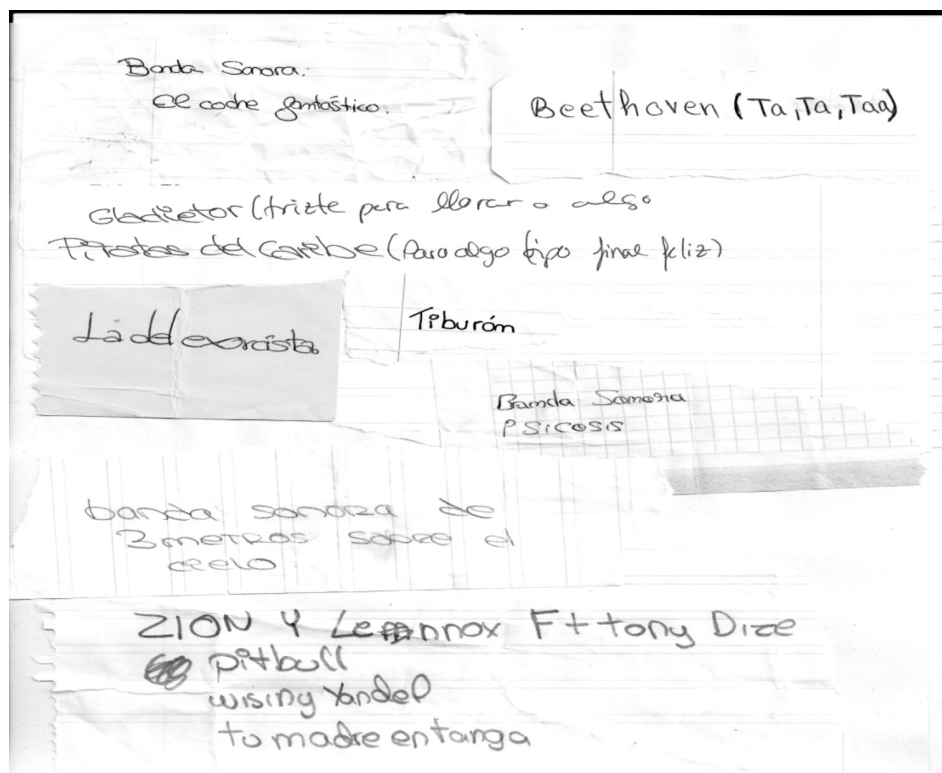 Banda Sonora:
El coche fantástico.
Beethoven (Ta, Ta, Taa)
Gladietor (trizte para llorar o algo
Piratas del Caribe (Para algo tipo final feliz)
La del exorcista
Tiburón
Banda Sonora
PSICOSIS
banda sonora de
3 metros sobre el
cielo
ZION Y Lennox Ft tony Dize
pitbull
wisiny Yandel
tu madre en tanga